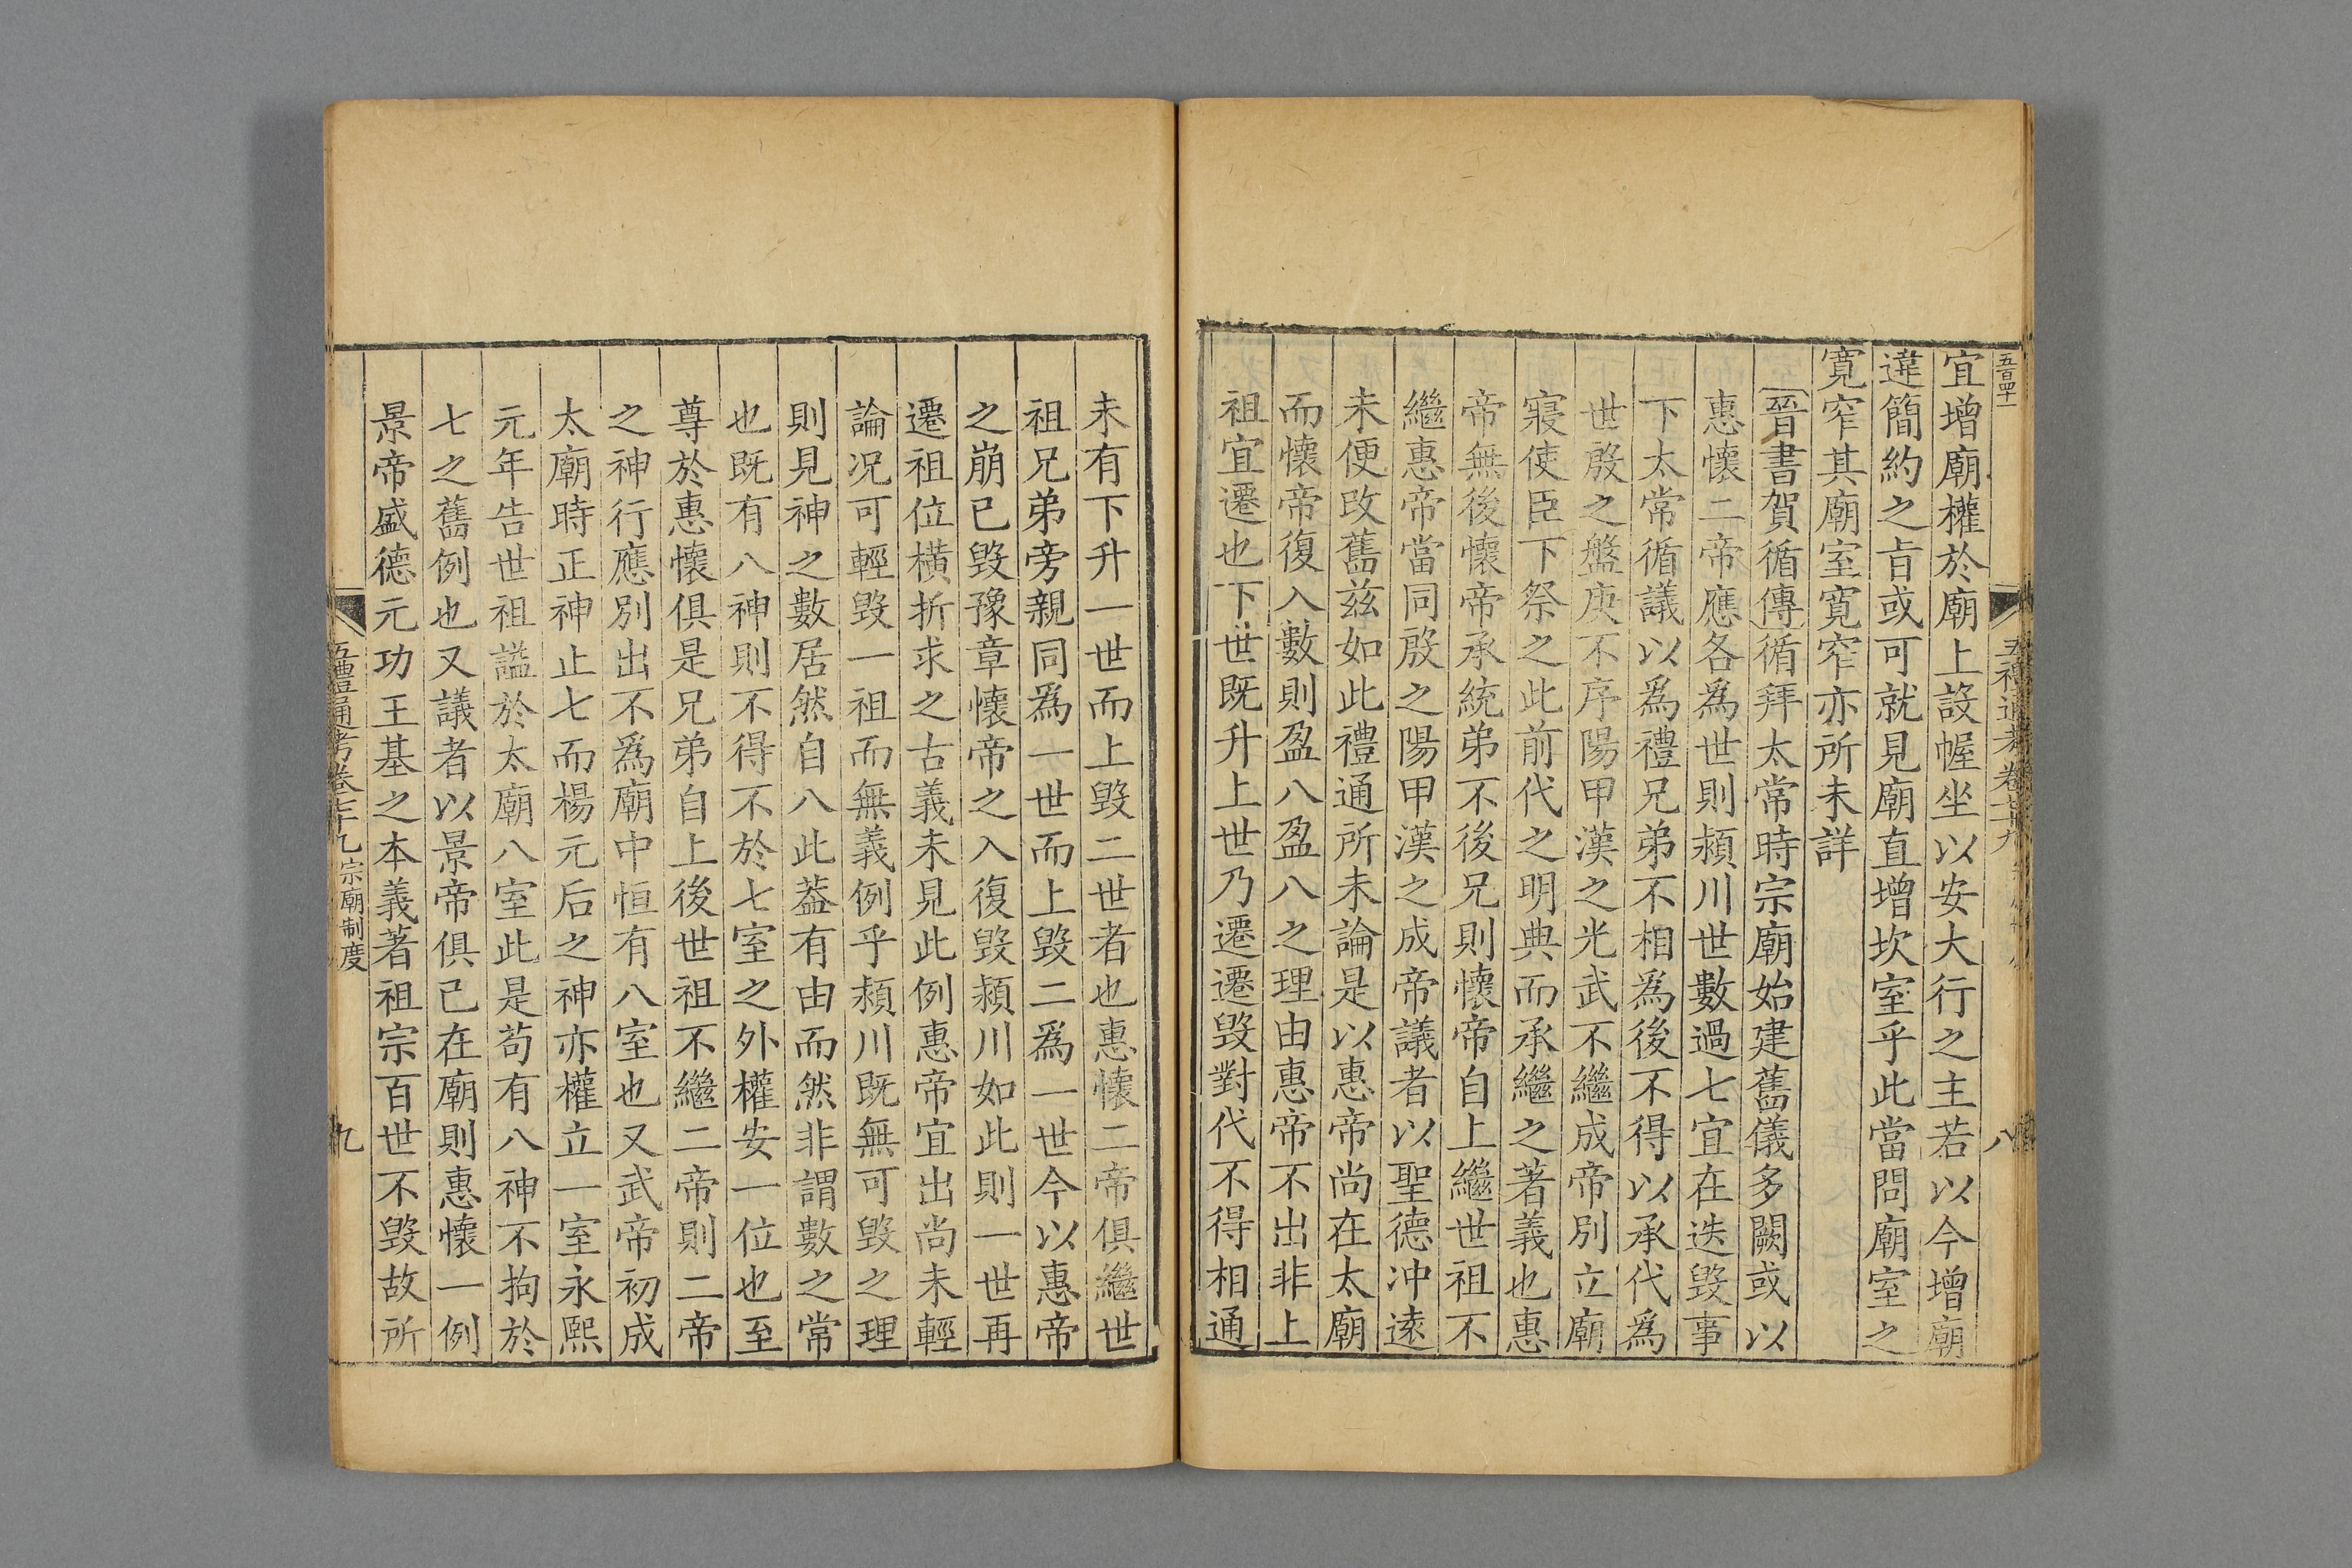 五百四十一
宜增廟權於廟上設幄坐以安大行之主若以今增廟
違簡約之旨或可就見廟直增坎室乎此當問廟室之
寬窄其廟室寬窄亦所未詳
晉書賀循傳循拜太常時宗廟始建舊儀多闕或以
惠懷二帝應各爲世則潁川世數過七宜在迭毀事
下太常循議以爲禮兄弟不相爲後不得以承代爲
世殷之盤庚不序陽甲漢之光武不繼成帝別立廟
寢使臣下祭之此前代之明典而承繼之著義也惠
帝無後懷帝承統弟不後兄則懷帝自上繼世祖不
繼惠帝當同殷之陽甲漢之成帝議者以聖德冲遠
未便改舊兹如此禮通所未論是以惠帝尚在太廟
而懷帝復入數則盈八盈八之理由惠帝不出非上
祖宜遷也下世既升上世乃遷遷毀對代不得相通
未有下升一世而上毀二世者也惠懷二帝俱繼世
祖兄弟旁親同爲一世而上毀二爲一世今以惠帝
之崩已毀豫章懷帝之入復毀潁川如此則一世再
遷祖位橫折求之古義未見此例惠帝宜出尚未輕
論况可輕毀一祖而無義例乎潁川既無可毀之理
則見神之數居然自八此葢有由而然非謂數之常
也既有八神則不得不於七室之外權安一位也至
尊於惠懷俱是兄弟自上後世祖不繼二帝則二帝
之神行應別出不爲廟中恒有八室也又武帝初成
太廟時正神止七而楊元后之神亦權立一室永熙
元年告世祖謚於太廟八室此是苟有八神不拘於
七之舊例也又議者以景帝俱已在廟則惠懷一例
景帝盛德元功王基之本義著祖宗百世不毀故所
五禮通考卷七十九 宗廟制度 九